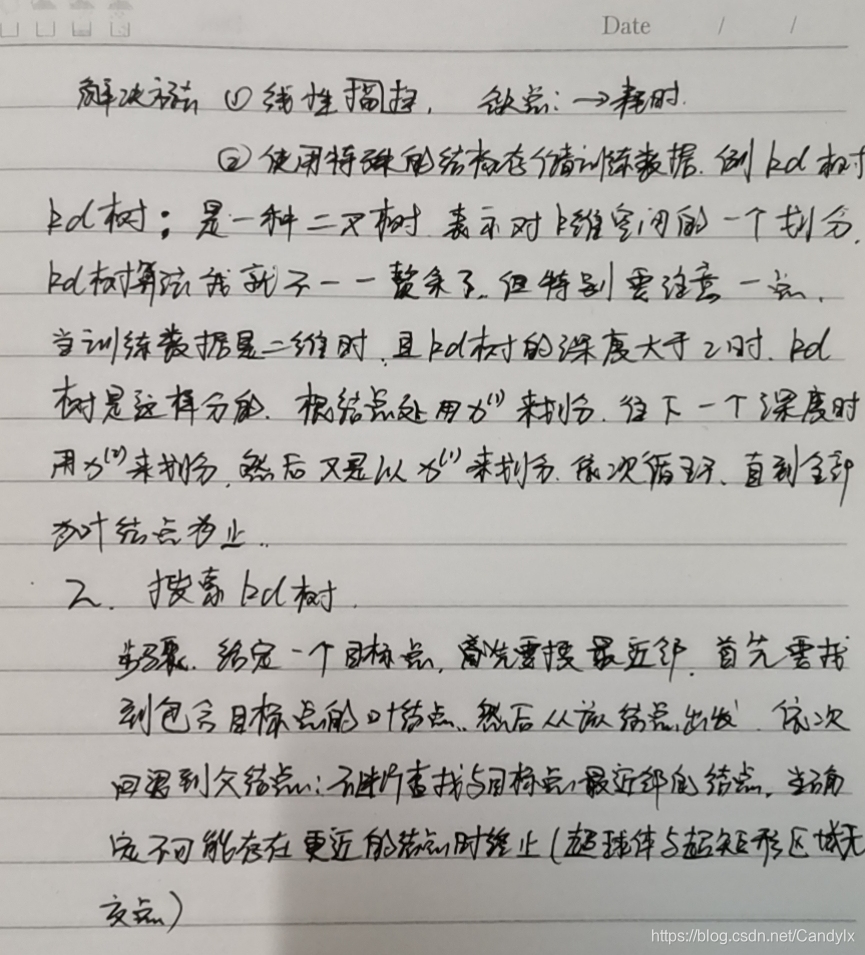 Date / /
解决方法 ① 线性扫描. 缺点: → 耗时.
② 使用特殊的结构存储训练数据. 例 kd 树
kd 树: 是一种二叉树 表示对 k维空间的一个划分.
kd树算法我就不一一赘余了. 但特别要注意一点.
当训练数据是二维时, 且 kd树的深度大于2时. kd
树是这样分的. 根结点处用x⁽¹⁾来划分. 往下一个深度时
用x⁽²⁾来划分, 然后又是以 x⁽¹⁾来划分. 依次循环、直到全部
为叶结点为止..
2. 搜索 kd 树.
步骤. 给定一个目标点, 首先要搜最近邻. 首先要找
到包含目标点的叶结点.. 然后从该结点出发. 依次
回溯到父结点; 不断查找与目标点最近邻的结点, 当确
定不可能存在更近的结点时终止(超球体与超矩形区域无
交点)
https://blog.csdn.net/Candylx